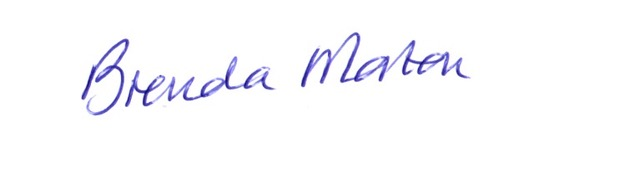 Brenda Morton